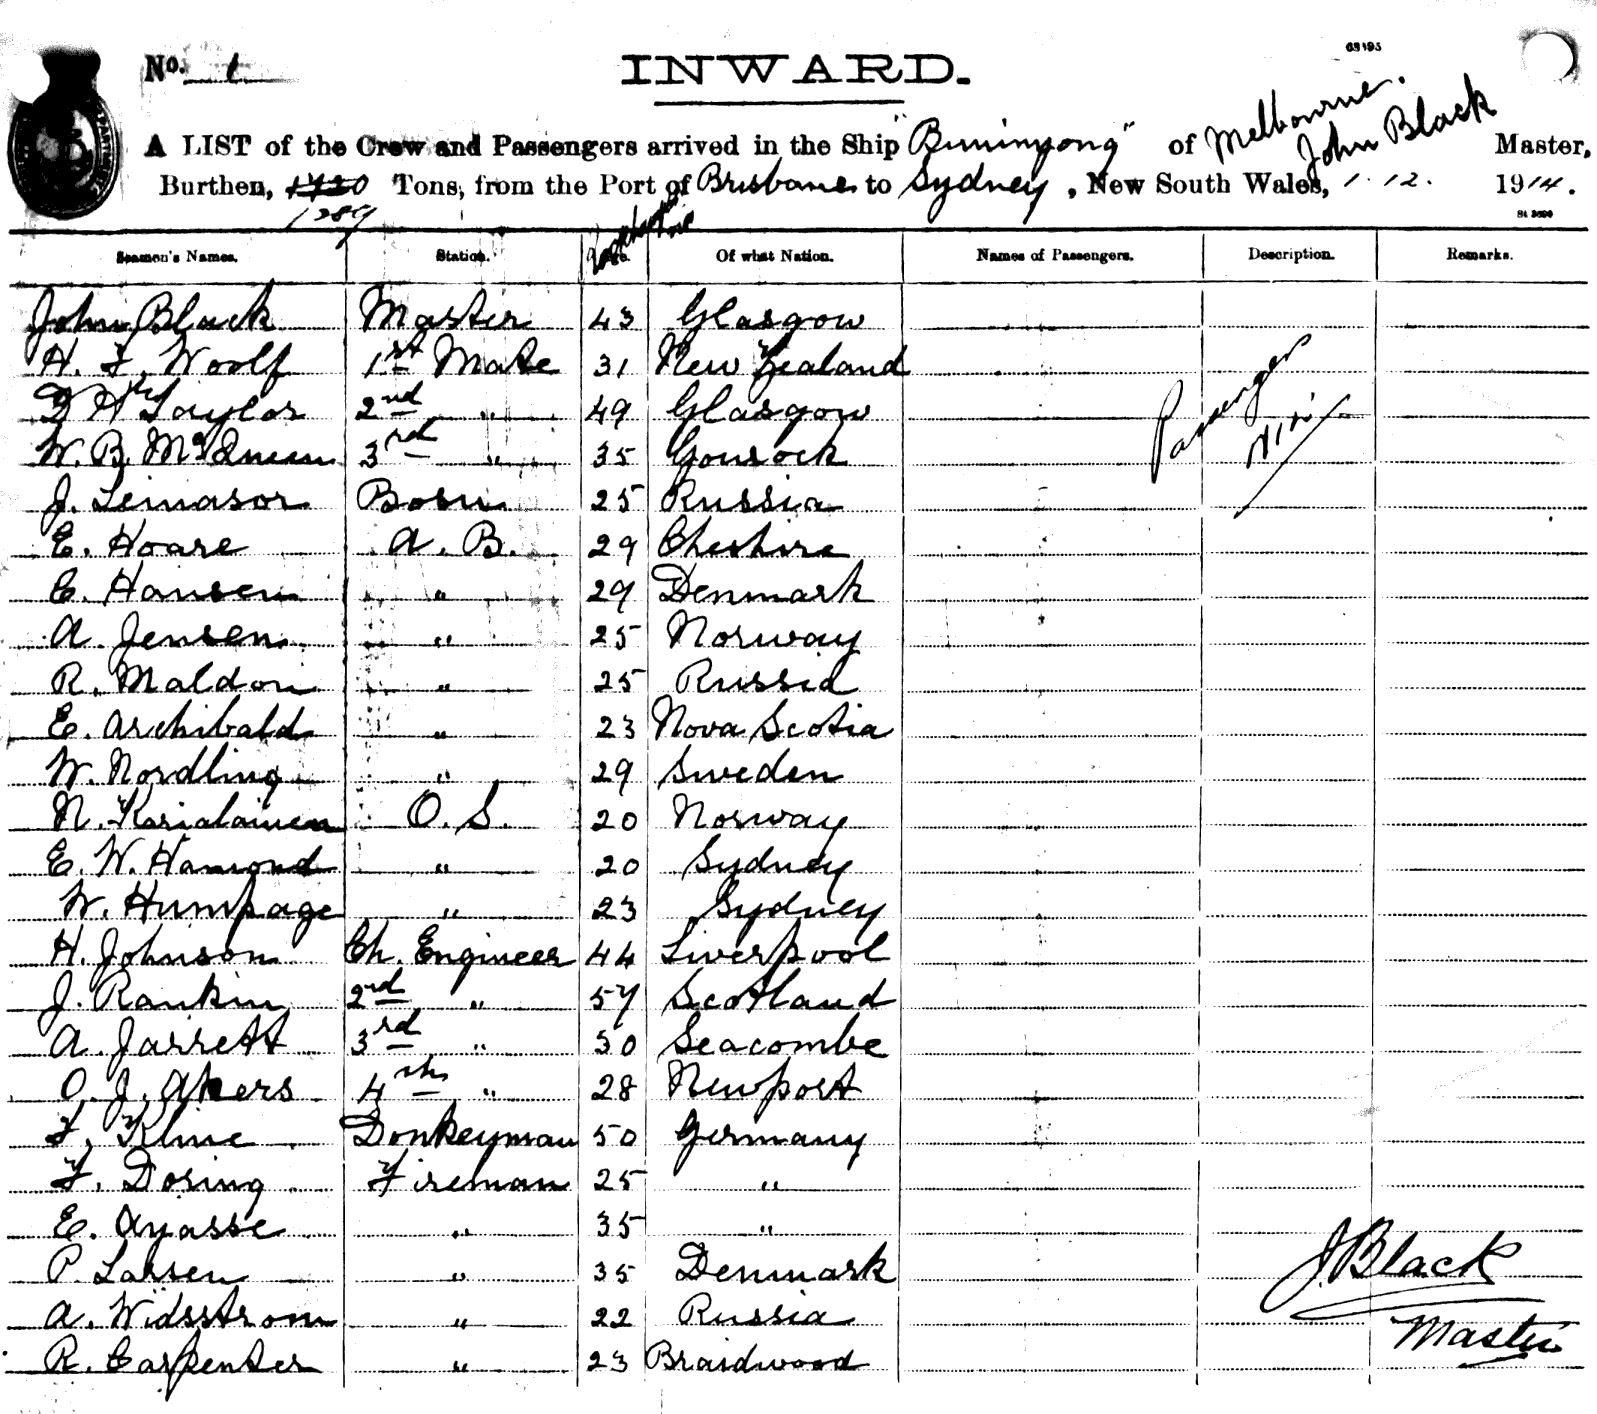 No. 1
INWARD.
63195
A LIST of the Crew and Passengers arrived in the Ship "Buninyong" of Melbourne. John Black Master,
Burthen, 1720 Tons, from the Port of Brisbane to Sydney, New South Wales, 1.12. 1914.
1289
St 3690
Seamen's Names. Station. Of what Nation. Names of Passengers. Description. Remarks.
John Black Master 43 Glasgow
H. F. Woolf 1st Mate 31 New Zealand
Taylor 2nd " 49 Glasgow
W. B. McQueen 3rd " 35 Gourock
J. Lemasor Bosun 25 Russia
E. Hoare A. B. 29 Cheshire
C. Hansen " 29 Denmark
A. Jensen " 25 Norway
R. Maldon " 25 Russia
E. Archibald " 23 Nova Scotia
W. Nordling " 29 Sweden
N. Karialainen O. S. 20 Norway
E. W. Hamond " 20 Sydney
W. Humpage " 23 Sydney
H. Johnson Ch. Engineer 44 Liverpool
J. Rankin 2nd " 57 Scotland
A. Jarrett 3rd " 50 Seacombe
O. J. Akers 4th " 28 Newport
F. Kline Donkeyman 50 Germany
F. Doring Fireman 25 "
E. Ayasse " 35 "
P. Larsen " 35 Denmark
A. Widsstrom " 22 Russia
R. Carpenter " 23 Braidwood
Passengers
Nil
J Black
Master